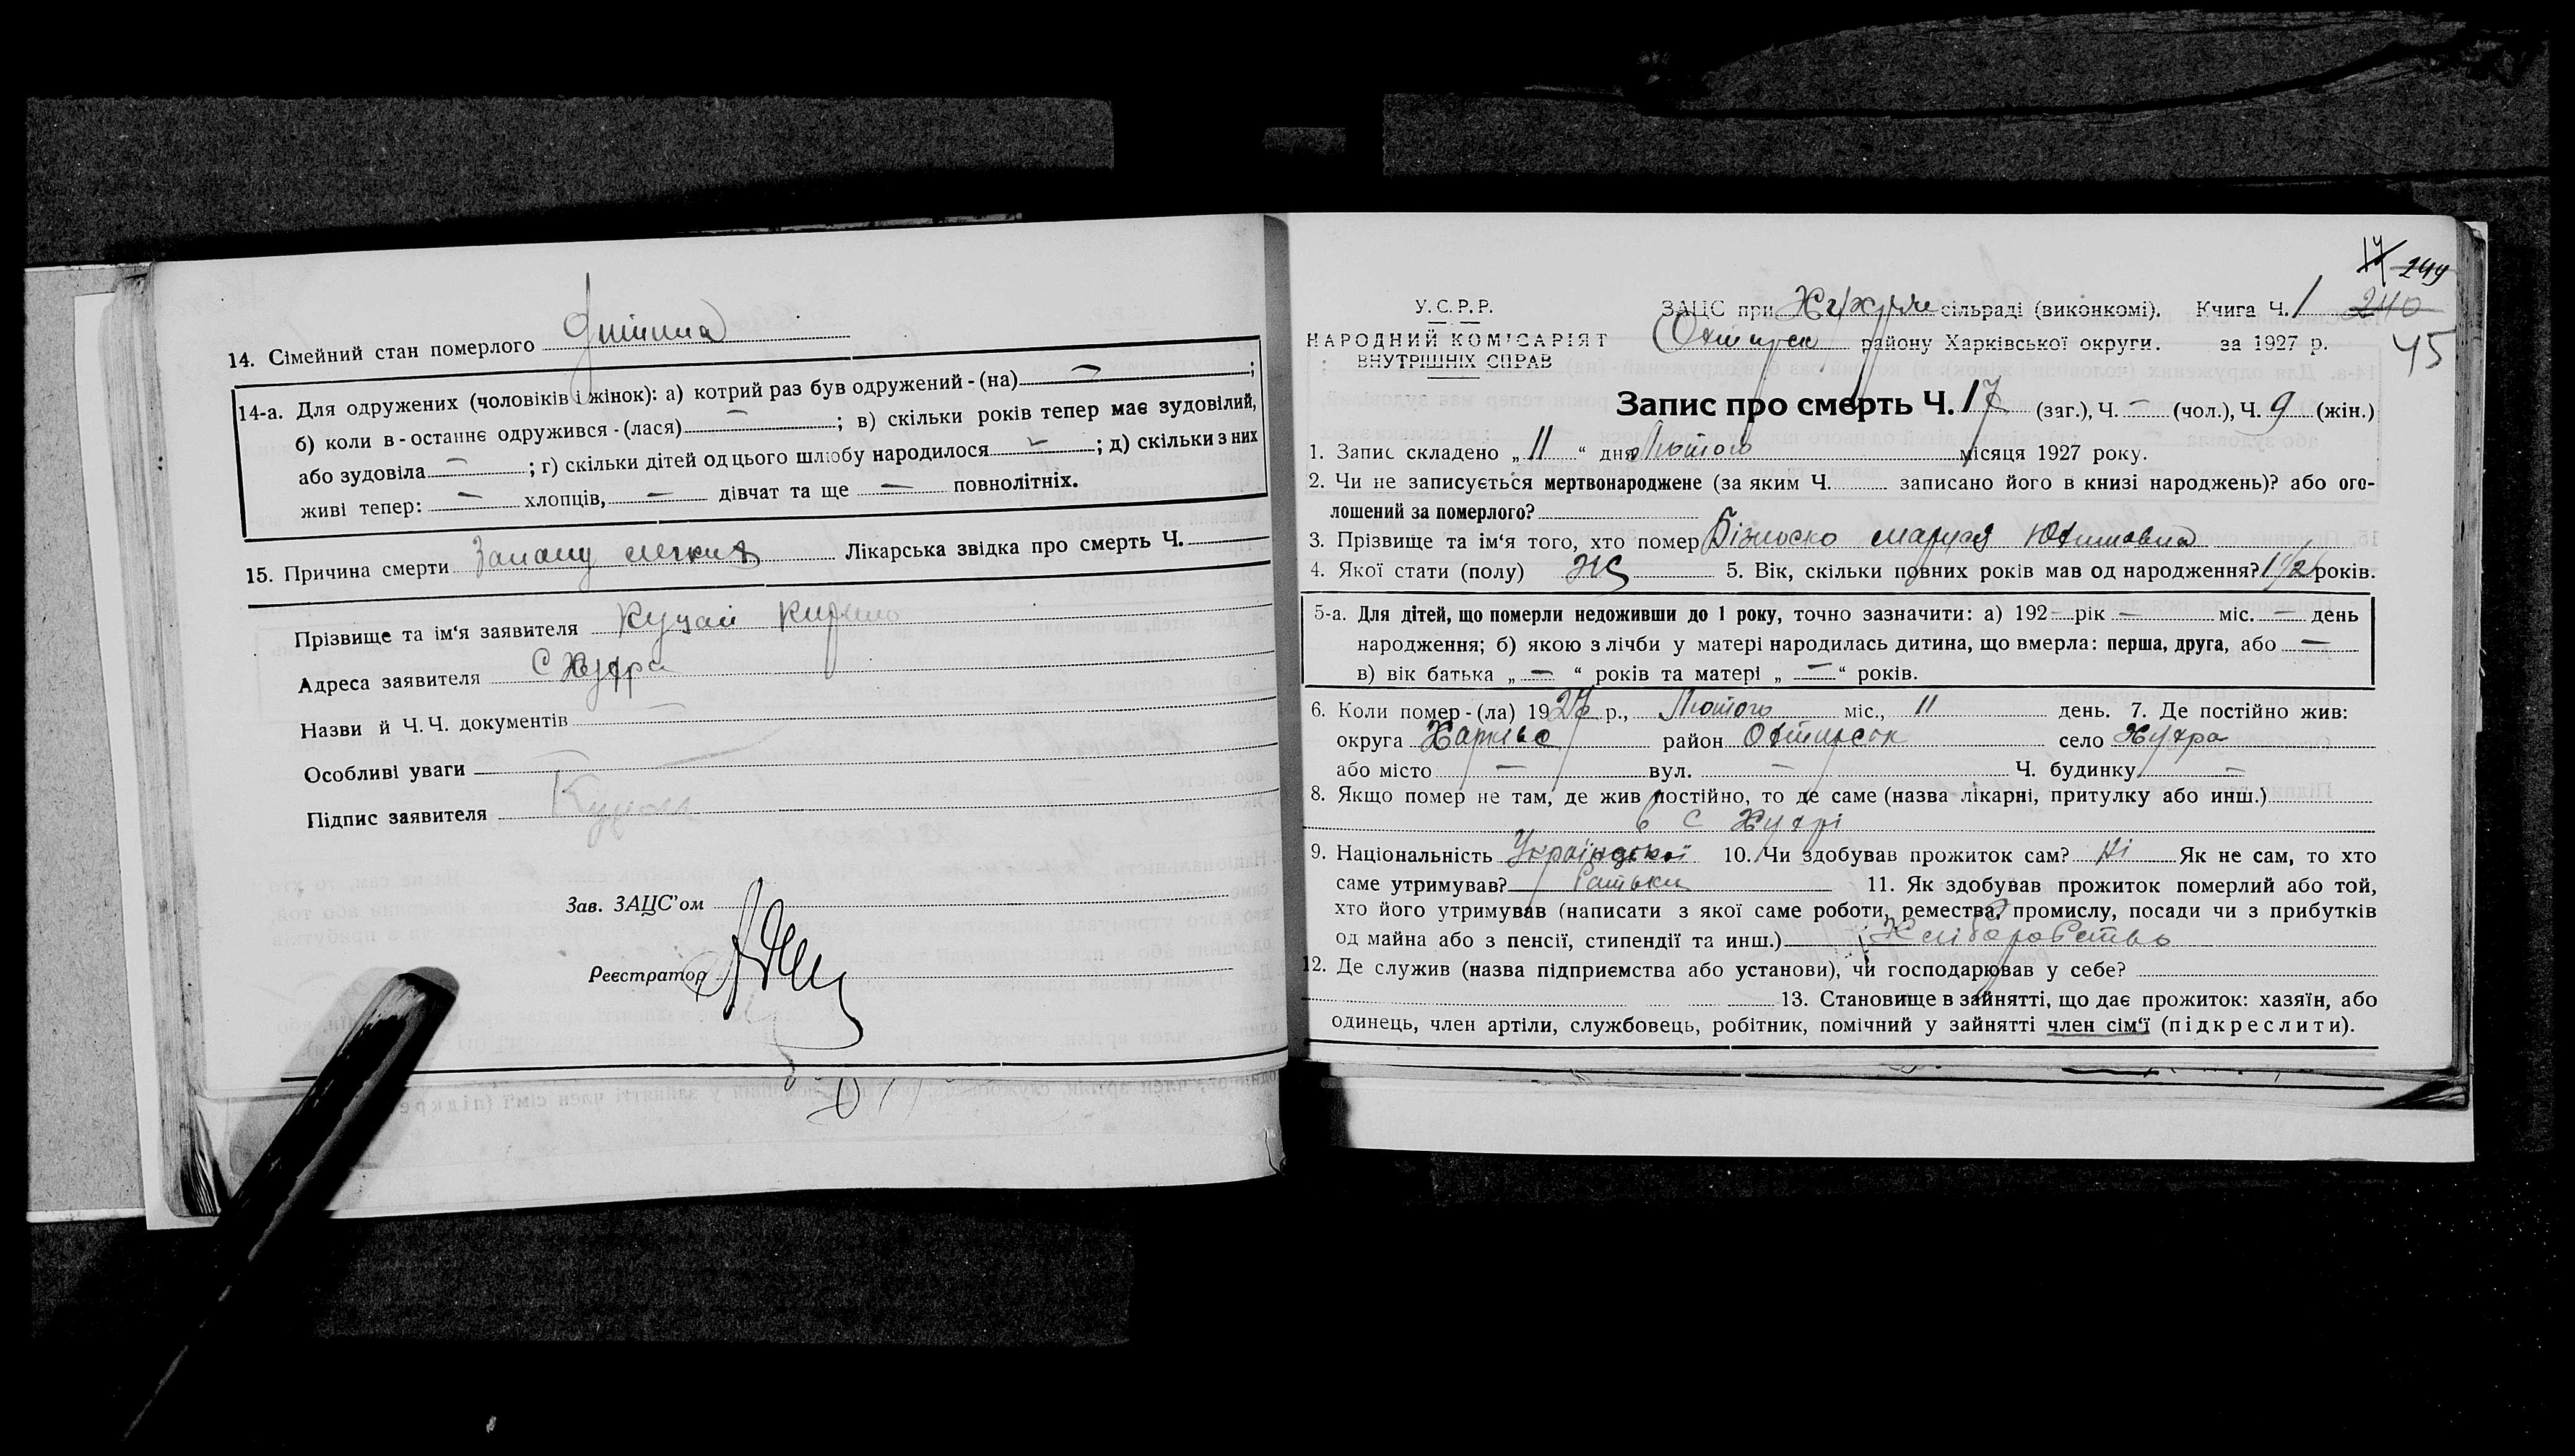 14. Сімейний стан померлого дитина
14-а. Для одружених (чоловіків і жінок): а) котрий раз був одружений - (на) — ;
б) коли в - останнє одружився - (лася) — ; в) скільки років тепер має зудовілий,
або зудовіла — ; г) скільки дітей од цього шлюбу народилося — ; д) скільки з них
живі тепер: — хлопців, — дівчат та ще — повнолітніх.
15. Причина смерти Лікарська звідка про смерть Ч.
Прізвище та ім'я заявителя Кирило
Адреса заявителя С Хухра
Назви й Ч. Ч. документів —
Особливі уваги
Підпис заявителя
Зав. ЗАЦС'ом
Реєстратор
17 244
У. С. Р. Р. ЗАЦС при сільраді (виконкомі). Книга Ч. 1 240
НАРОДНИЙ КОМІСАРІЯТ Охтирск району Харківської округи. за 1927 р. 45
ВНУТРІШНІХ СПРАВ
Запис про смерть Ч. 17 (заг.), Ч. — (чол.), Ч. 9 (жін.)
1. Запис складено „ 11 “ дня Лютого місяця 1927 року.
2. Чи не записується мертвонароджене (за яким Ч. записано його в книзі народжень)? або ого-
лошений за померлого?
3. Прізвище та ім'я того, хто помер Маруся
4. Якої стати (полу) Ж 5. Вік, скільки повних років мав од народження? 1 1/2 років.
5-а. Для дітей, що померли недоживши до 1 року, точно зазначити: а) 192 — рік — міс. — день
народження; б) якою з лічби у матері народилась дитина, що вмерла: перша, друга, або —
в) вік батька „ — “ років та матері „ — “ років.
6. Коли помер - (ла) 1927 р., Лютого міс., 11 день. 7. Де постійно жив:
округа Харківс район Охтирсок село Хухра
або місто — вул. — Ч. будинку —
8. Якщо помер не там, де жив постійно, то де саме (назва лікарні, притулку або инш.)
в С Хухрі
9. Національність Української 10. Чи здобував прожиток сам? Ні Як не сам, то хто
саме утримував? Батьки 11. Як здобував прожиток померлий або той,
хто його утримував (написати з якої саме роботи, ремества, промислу, посади чи з прибутків
од майна або з пенсії, стипендії та инш.) Хліборобство
12. Де служив (назва підприємства або установи), чи господарював у себе?
13. Становище в зайнятті, що дає прожиток: хазяїн, або
одинець, член артіли, службовець, робітник, помічний у зайнятті член сім'ї (підкреслити).